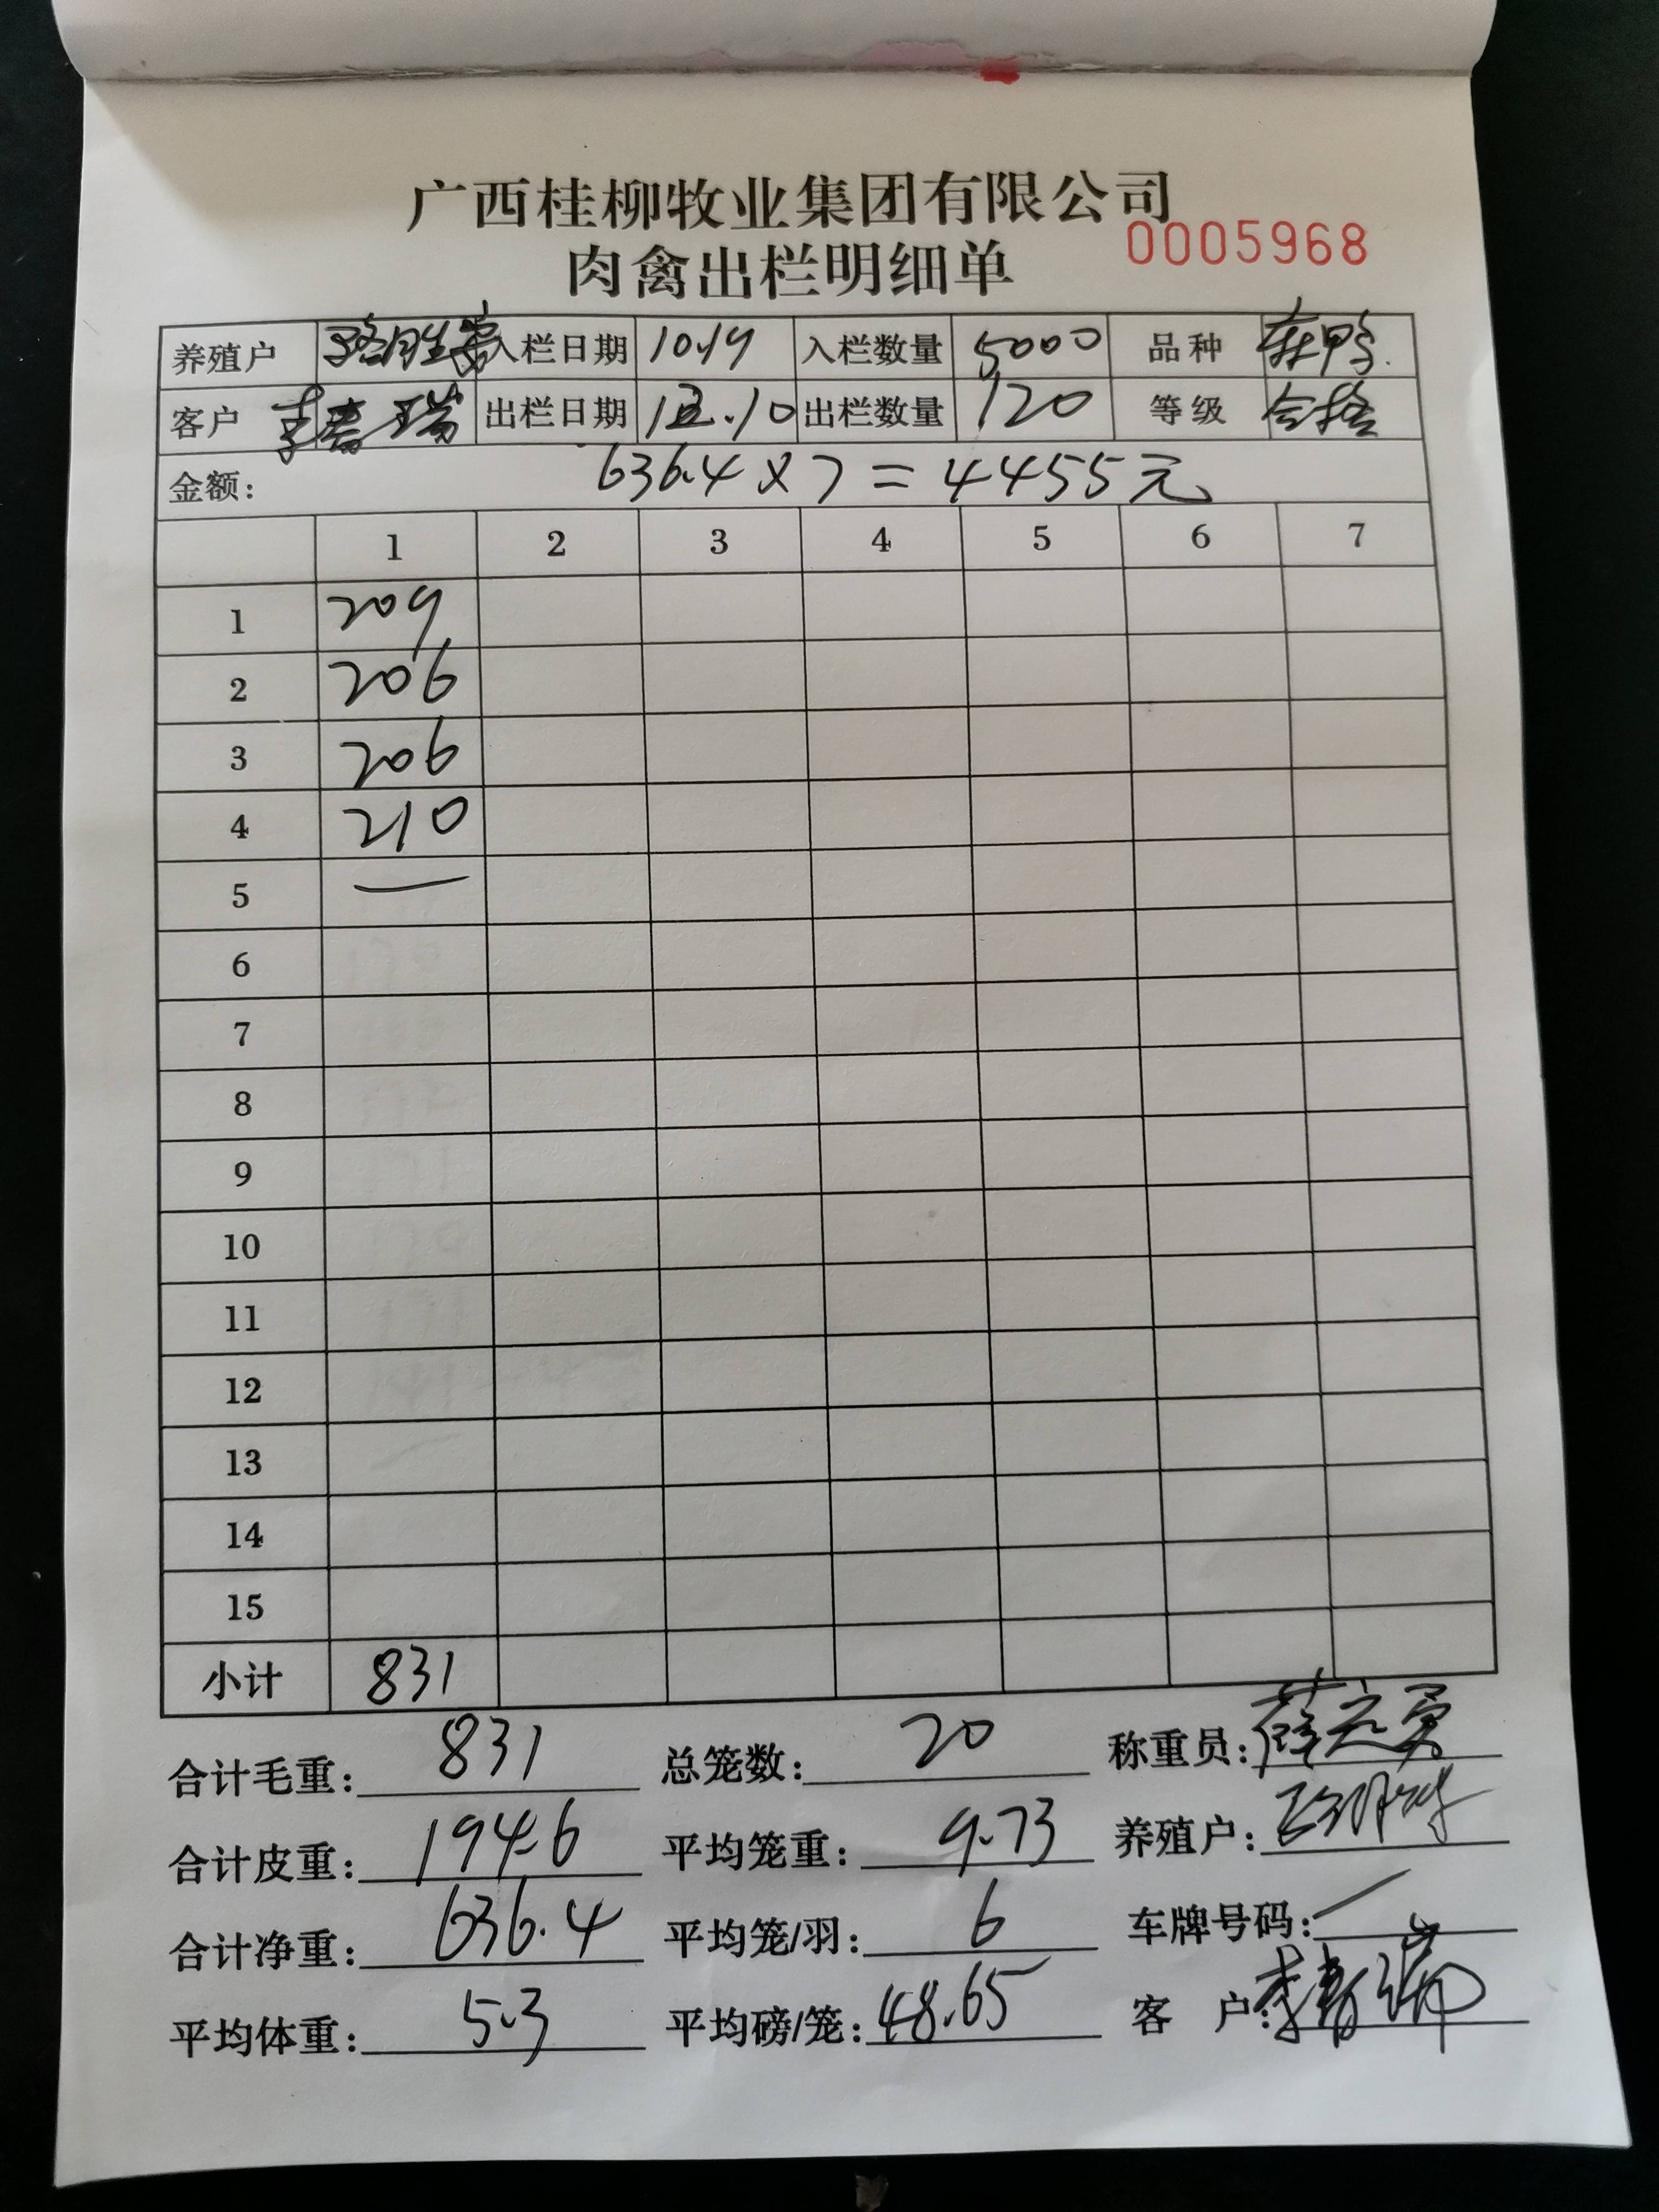 广西桂柳牧业集团有限公司
0005968
肉禽出栏明细单
养殖户 入栏日期 10.19 入栏数量 5000 品种
客户 李春瑞 出栏日期 12.10 出栏数量 120 等级 合格
金额: 636.4×7=4455元
1 2 3 4 5 6 7
1 209
2 206
3 206
4 210
5 —
6
7
8
9
10
11
12
13
14
15
小计 831
合计毛重: 831 总笼数: 20 称重员:
合计皮重: 194.6 平均笼重: 9.73 养殖户:
合计净重: 636.4 平均笼/羽: 6 车牌号码:
平均体重: 5.3 平均磅/笼: 48.65 客户: